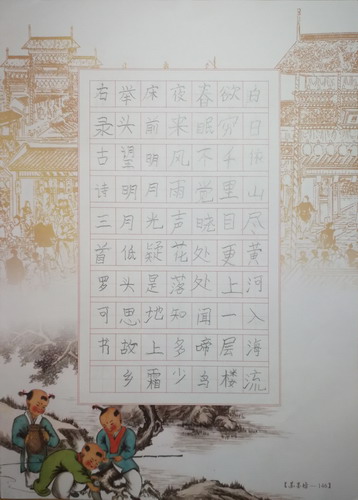 白日依山尽黄河入海流
欲穷千里目更上一层楼
春眠不觉晓处处闻啼鸟
夜来风雨声花落知多少
床前明月光疑是地上霜
举头望明月低头思故乡
右录古诗三首罗可书